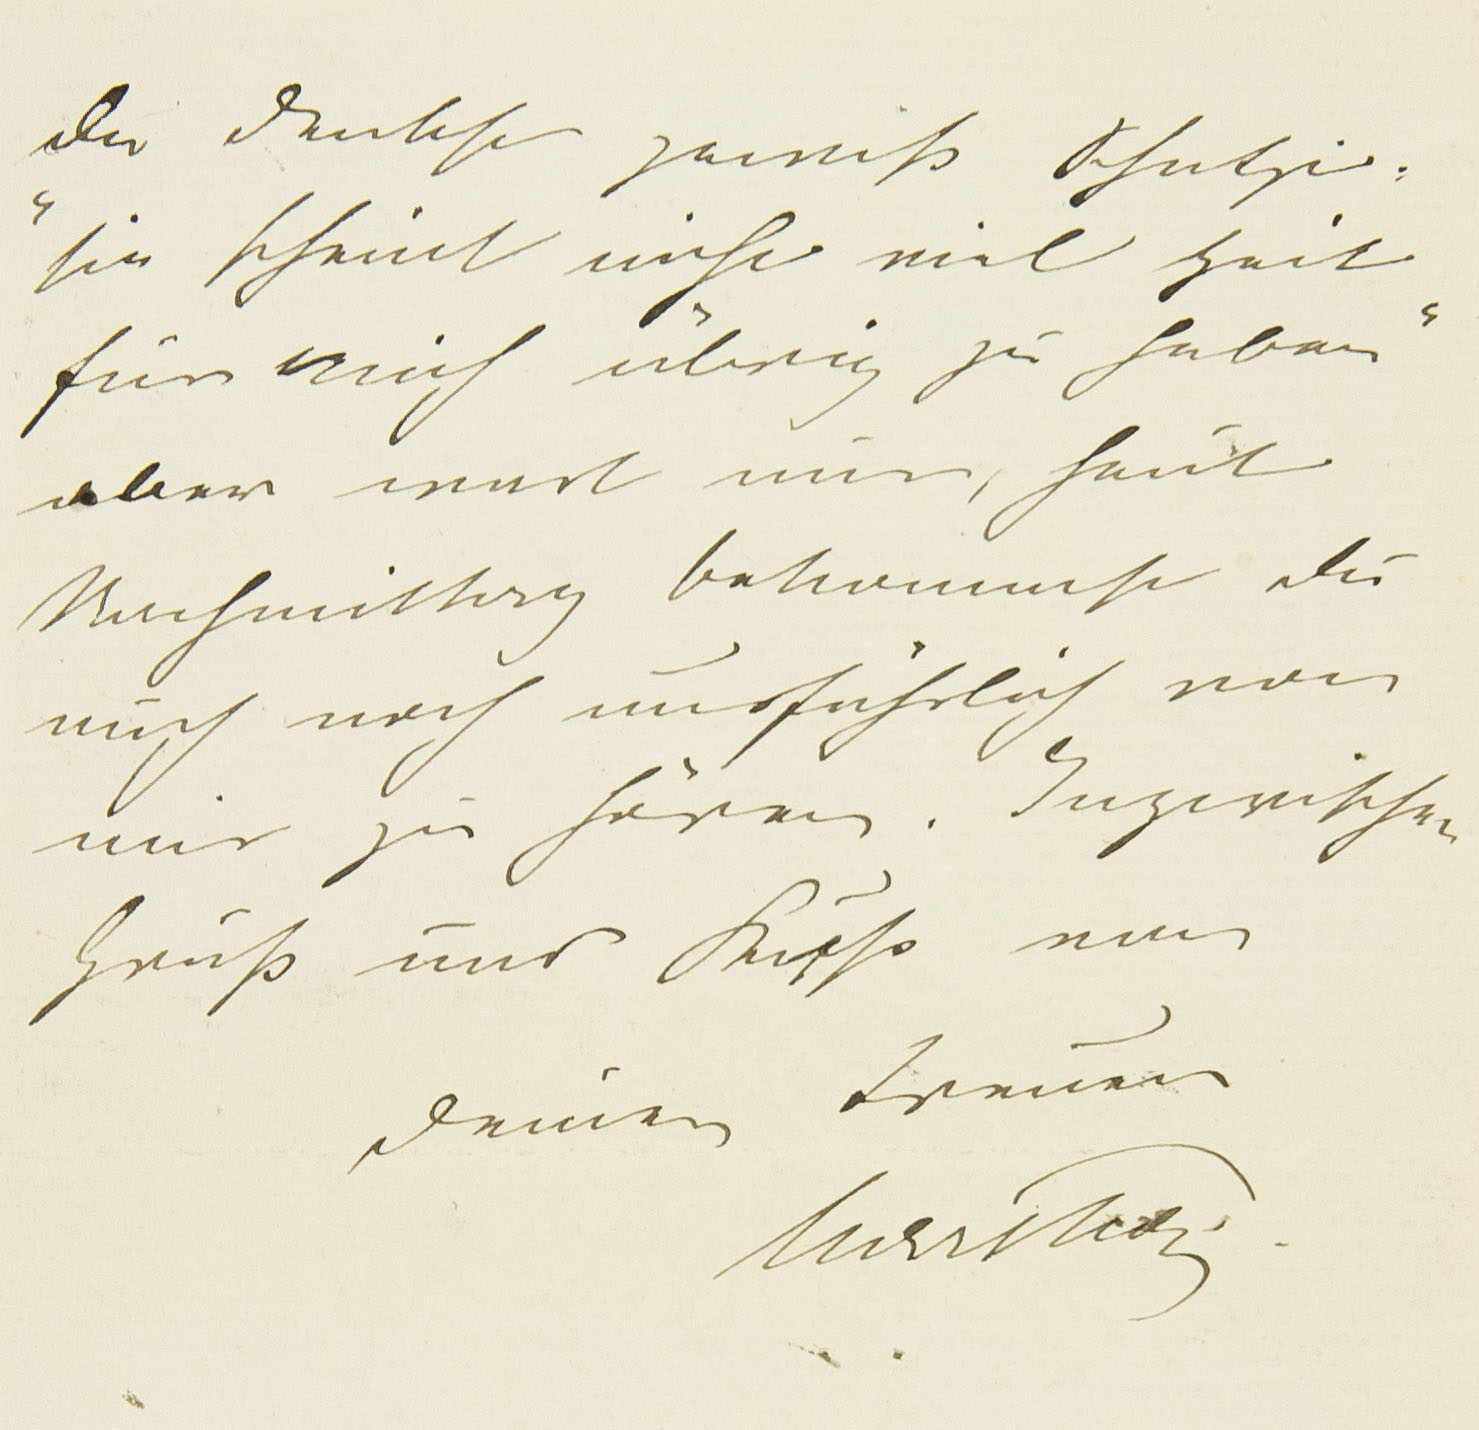 Du denkst gewiß Schutzi:
"sie scheint nicht viel Zeit
für mich übrig zu haben"
aber wart nur, heut
Nachmittag bekommst Du
auch noch ausführlich von
mir zu hören. Inzwischen
Gruß und Kuß von
Deinem treuen